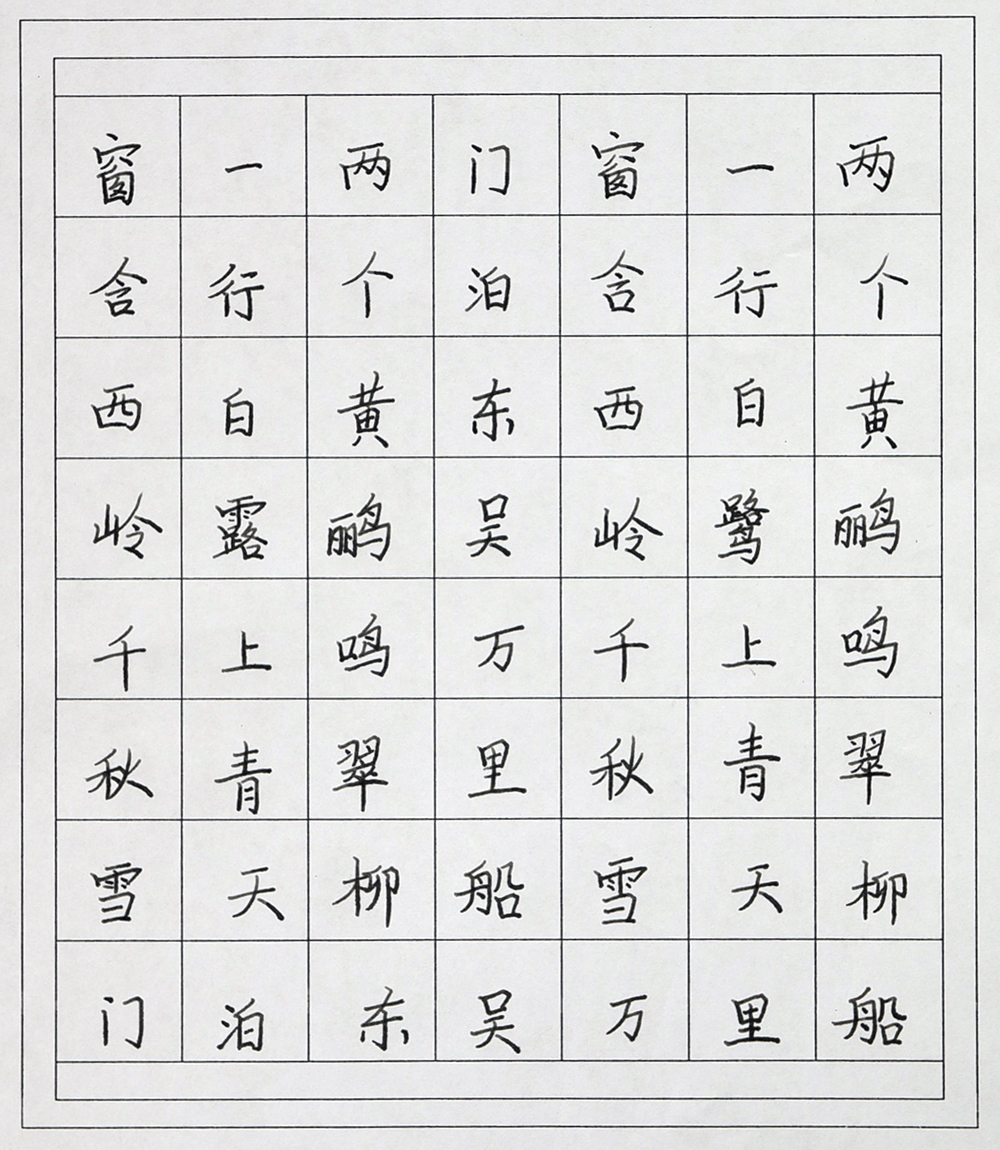 两个黄鹂鸣翠柳
一行白鹭上青天
窗含西岭千秋雪
门泊东吴万里船
两个黄鹂鸣翠柳
一行白露上青天
窗含西岭千秋雪
门泊东吴万里船